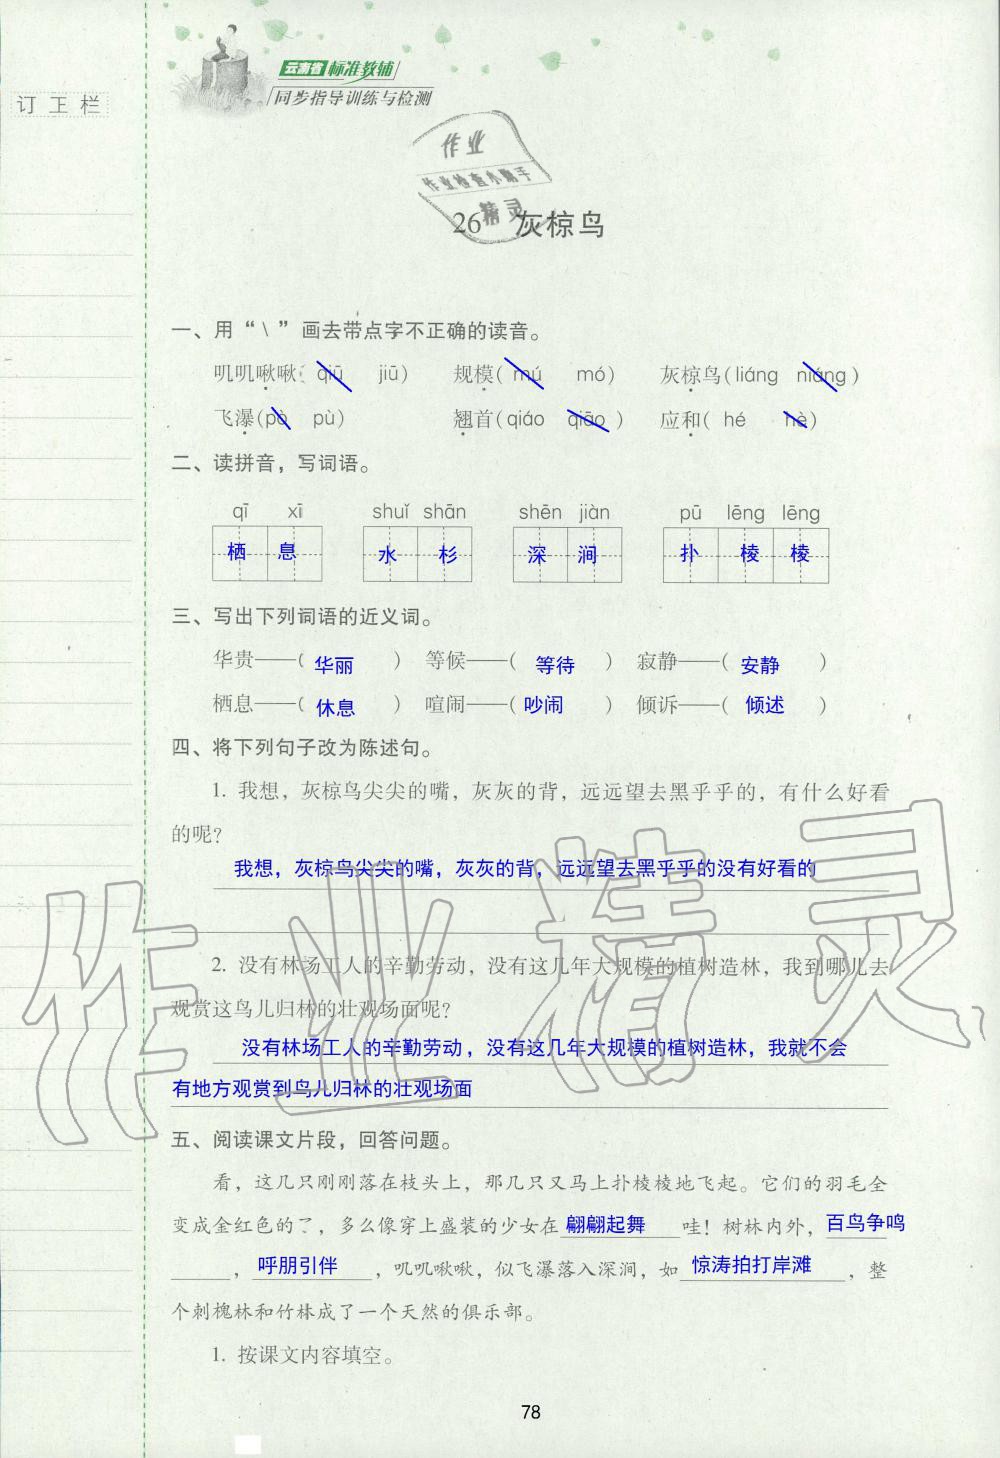 云南省标准教辅
同步指导训练与检测
订正栏
作业
作业检查小助手
精灵
26 灰椋鸟
一、用“\”画去带点字不正确的读音。
叽叽啾啾( qiū jiū) 规模( mú mó) 灰椋鸟(liáng niáng)
飞瀑(pò pù) 翘首(qiáo qiāo ) 应和( hé hè)
二、读拼音，写词语。
qī xī shuǐ shān shēn jiàn pū lēng lēng
栖 息 水 杉 深 涧 扑 棱 棱
三、写出下列词语的近义词。
华贵——( 华丽 ) 等候——( 等待 ) 寂静——( 安静 )
栖息——( 休息 ) 喧闹——( 吵闹 ) 倾诉——( 倾述 )
四、将下列句子改为陈述句。
1. 我想，灰椋鸟尖尖的嘴，灰灰的背，远远望去黑乎乎的，有什么好看
的呢？
我想，灰椋鸟尖尖的嘴，灰灰的背，远远望去黑乎乎的没有好看的
2. 没有林场工人的辛勤劳动，没有这几年大规模的植树造林，我到哪儿去
观赏这鸟儿归林的壮观场面呢？
没有林场工人的辛勤劳动，没有这几年大规模的植树造林，我就不会
有地方观赏到鸟儿归林的壮观场面
五、阅读课文片段，回答问题。
看，这几只刚刚落在枝头上，那几只又马上扑棱棱地飞起。它们的羽毛全
变成金红色的了，多么像穿上盛装的少女在 翩翩起舞 哇！树林内外，百鸟争鸣
，呼朋引伴 ，叽叽啾啾，似飞瀑落入深涧，如 惊涛拍打岸滩 ，整
个刺槐林和竹林成了一个天然的俱乐部。
1. 按课文内容填空。
78
作业精灵